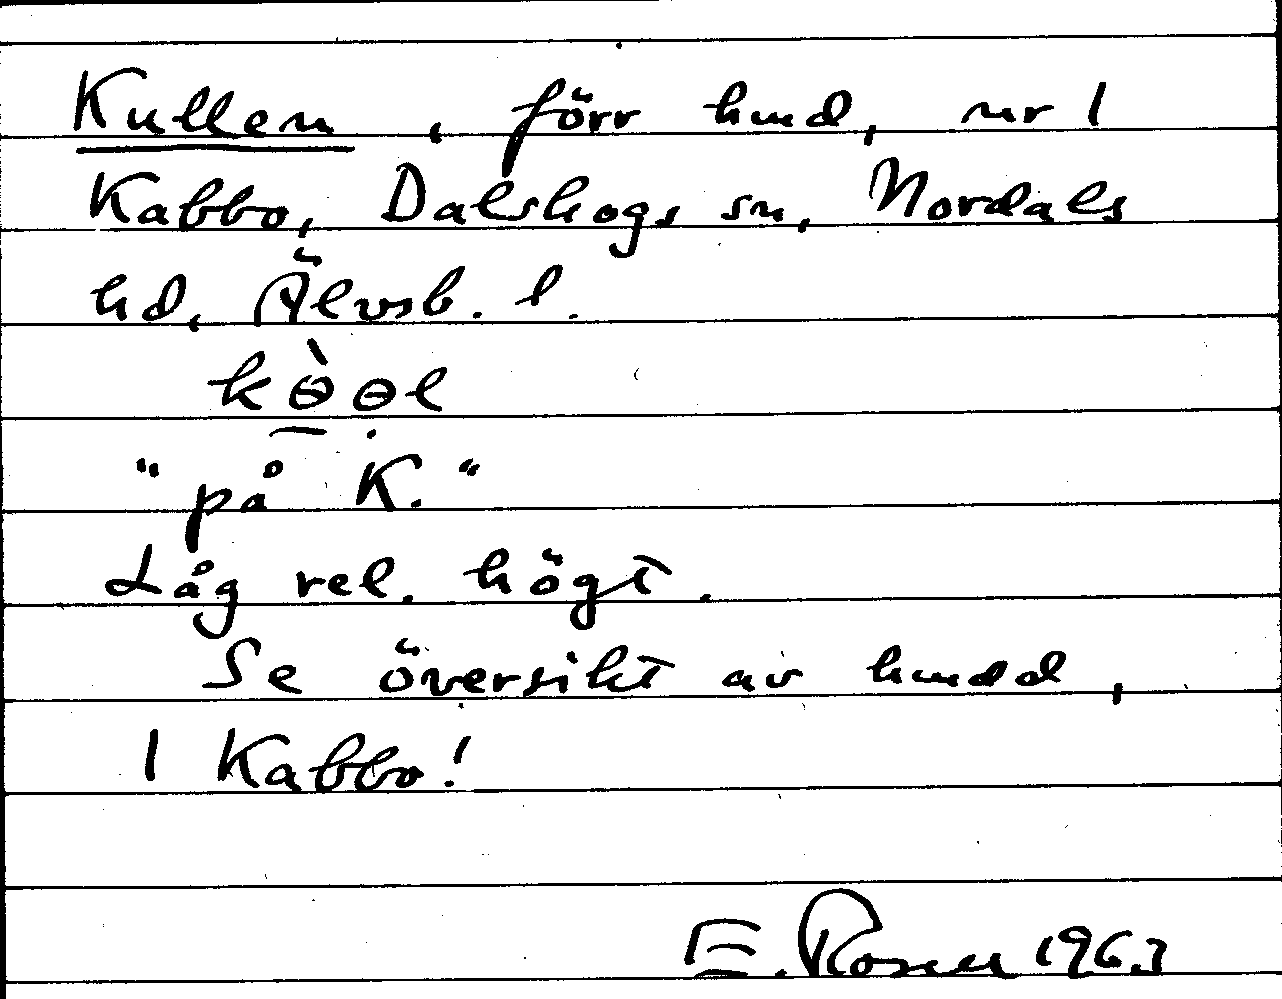 Kullen, förr hmd, nr 1
Kabbo, Dalskogs sn, Nordals
hd, Älvsb. l.
kɵ̀ɵl
"på K."
Låg rel. högt.
Se översikt av hmdd,
1 Kabbo!
E. Rosen 1963